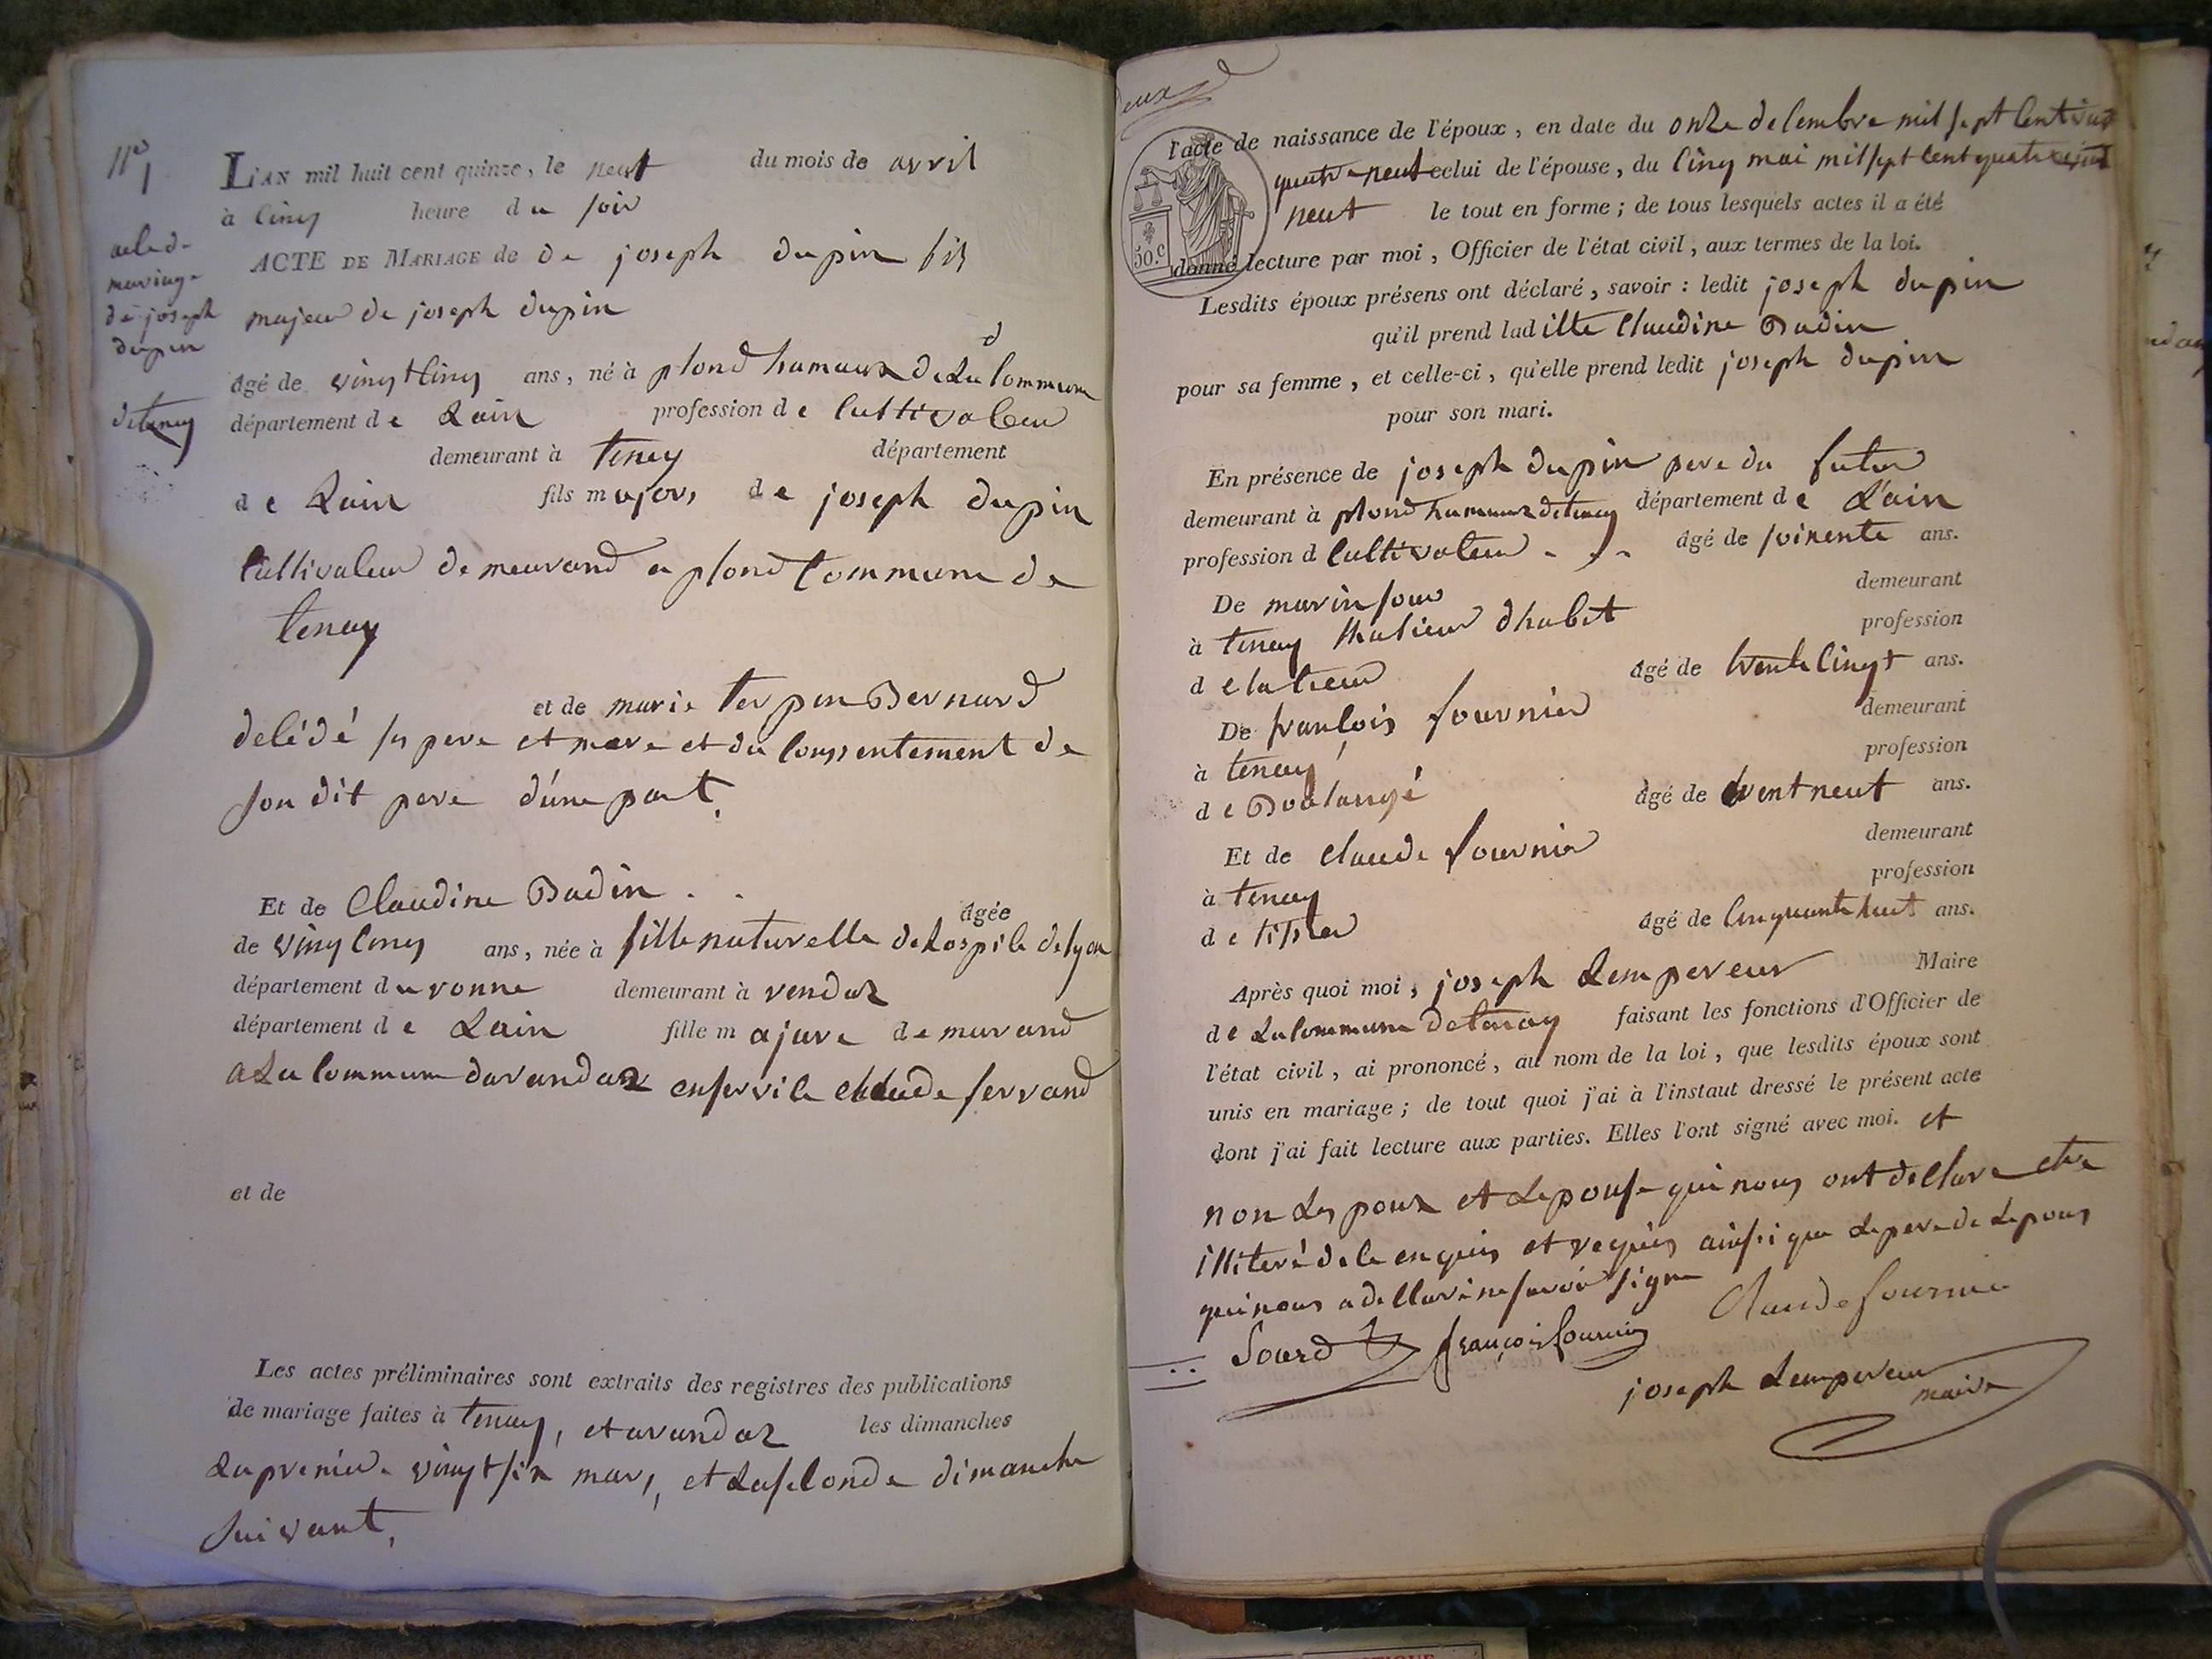 N° 1
acte de
mariage
de joseph
dupin
de tenay
L'AN mil huit cent quinze, le neuf du mois de avril
à cinq heure du soir
ACTE DE MARIAGE de de joseph dupin fils
majeur de joseph dupin
âgé de vingtcinq ans, né à plond hameaux de La Commune
département de Lain profession de Cultivateur
demeurant à tenay département
de Lain fils majors de joseph dupin
Cultivateur demeurand a plond Commune de
tenay
et de marie Bernard
décédé ses pere et mere et du Conssentement de
son dit pere d'une part.
Et de Claudine Badin . . âgée
de vingcinq ans, née à fille naturelle de Lospile de lyon
département du ronne demeurant à vendaz
département de Lain fille majure demurand
a La Commune darandaz en servile Claude ferrand
et de
Les actes préliminaires sont extraits des registres des publications
de mariage faites à tenay, et arandaz les dimanches
La premiere vingt six mars, et La seconde dimanche
suivant,
deux
50.C
l'acte de naissance de l'époux, en date du onze decembre mil sept Cent
quatre neuf celui de l'épouse, du Cinq mai mil sept Cent quatre vint
neuf le tout en forme ; de tous lesquels actes il a été
donné lecture par moi, Officier de l'état civil, aux termes de la loi.
Lesdits époux présens ont déclaré, savoir : ledit joseph dupin
qu'il prend ladille Claudine Badin
pour sa femme, et celle-ci, qu'elle prend ledit joseph dupin
pour son mari.
En présence de joseph dupin pere du futur
demeurant à plond hameaux de tenay département de L'ain
profession d Cultivateur âgé de soixente ans.
De marin sour demeurant
à tenay d'habit profession
d âgé de trente Cinqt ans.
De françois fournier demeurant
à tenay profession
de Boulangé âgé de trent neuf ans.
Et de Claude fournier demeurant
à tenay profession
de tisser âgé de Cinquante huit ans.
Après quoi moi, joseph Lempereur Maire
de La Commune de tenay faisant les fonctions d'Officier de
l'état civil, ai prononcé, au nom de la loi, que lesdits époux sont
unis en mariage ; de tout quoi j'ai à l'instaut dressé le présent acte
dont j'ai fait lecture aux parties. Elles l'ont signé avec moi. et
non Les poux et Lepouse qui nous ont declare etre
illiteré de ce enquis et requis ainsi que Le pere de Lepous
qui nous a declaré ne savoir signe
Sourd françois fournier Claude fournier
joseph Lempereur
maire